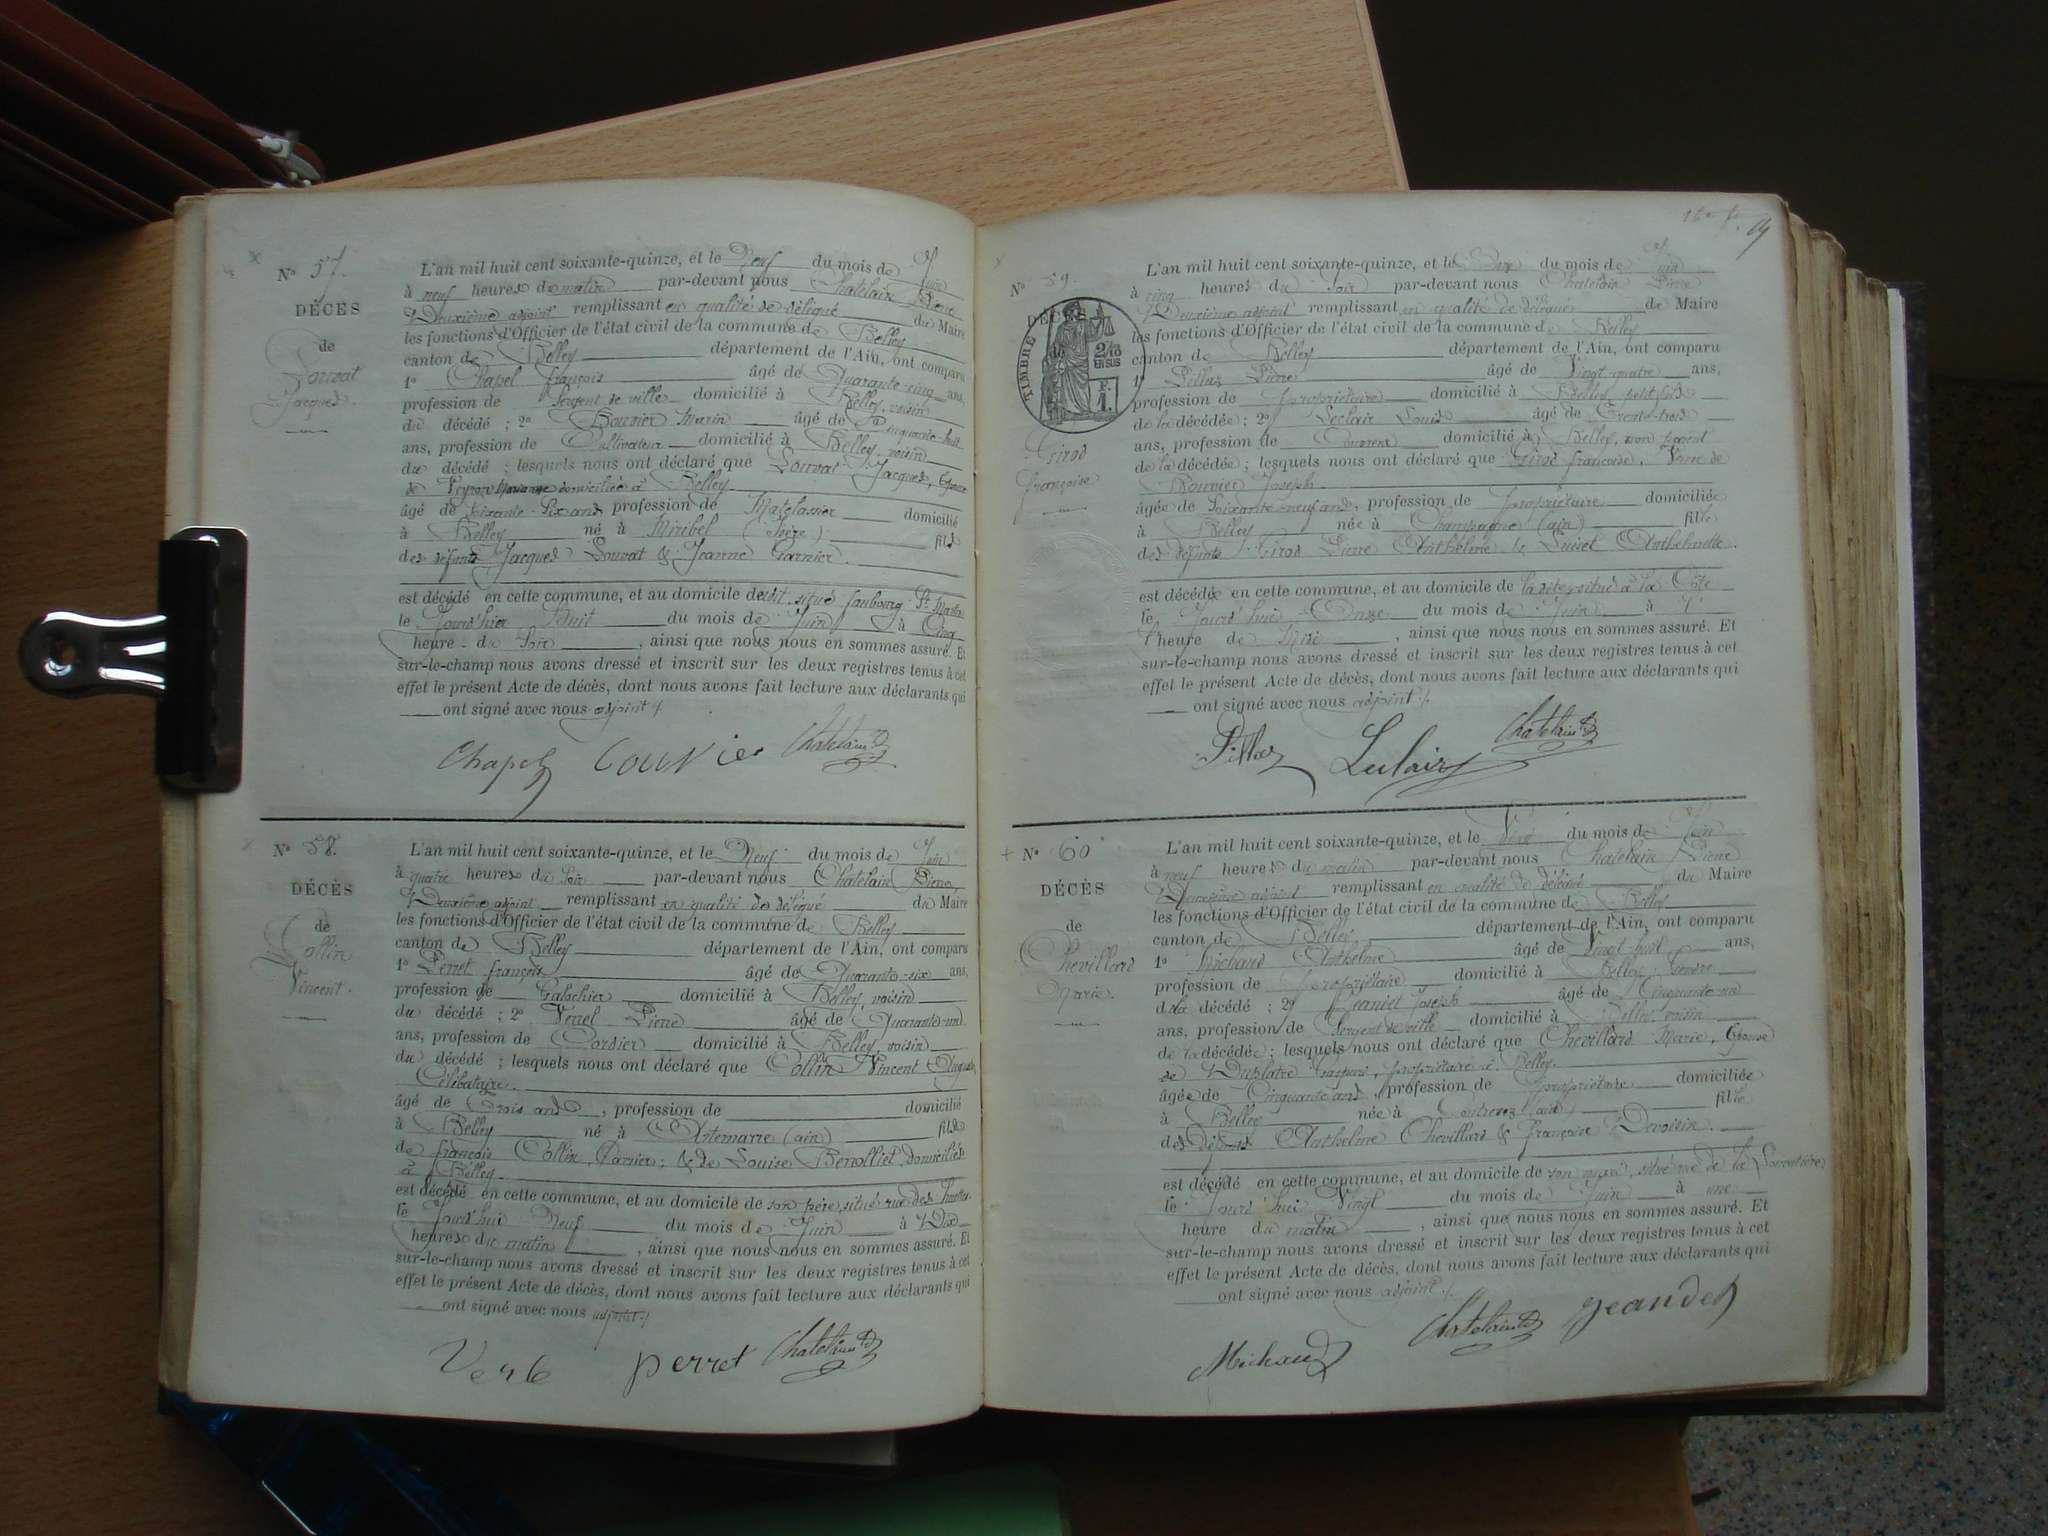 N° 57.
DÉCÈS
de
Louvat
Jacques.
L'an mil huit cent soixante-quinze, et le Neuf du mois de Juin
à neuf heures du matin par-devant nous Chatelain Pierre
Deuxième adjoint remplissant en qualité de délégué du Maire
les fonctions d'Officier de l'état civil de la commune de Belley
canton de Belley département de l'Ain, ont comparu
1° Chapel françois âgé de Quarante-cinq ans,
profession de Sergent de ville domicilié à Belley, voisin
du décédé ; 2° Bouvier Marin âgé de Cinquante-huit
ans, profession de Cultivateur domicilié à Belley, voisin
du décédé ; lesquels nous ont déclaré que Louvat Jacques, Epoux
de domiciliée à Belley
âgé de Soixante-six ans profession de Matelassier domicilié
à Belley né à Miribel (Isère) fils
des défunts Jacques Louvat & Jeanne Garnier.
est décédé en cette commune, et au domicile dudit, situé faubourg St Martin
le Jourd'hier Huit du mois de Juin à Cinq
heure du Soir, ainsi que nous nous en sommes assuré. Et
sur-le-champ nous avons dressé et inscrit sur les deux registres tenus à cet
effet le présent Acte de décès, dont nous avons fait lecture aux déclarants qui
ont signé avec nous adjoint
Chapel Chatelain
N° 58.
DÉCÈS
de
Collin
Vincent.
L'an mil huit cent soixante-quinze, et le Neuf du mois de Juin
à quatre heures du Soir par-devant nous Chatelain Pierre,
Deuxième adjoint remplissant en qualité de délégué du Maire
les fonctions d'Officier de l'état civil de la commune de Belley
canton de Belley département de l'Ain, ont comparu
1° Perret françois âgé de Quarante-six ans,
profession de Galochier domicilié à Belley, voisin
du décédé ; 2° Pierre âgé de Quarante-un
ans, profession de Cordier domicilié à Belley, voisin
du décédé ; lesquels nous ont déclaré que Collin Vincent
Célibataire.
âgé de Trois ans, profession de domicilié
à Belley né à Artemarre (ain) fils
de françois Collin, & de Louise Benolliel, domiciliés
à Belley
est décédé en cette commune, et au domicile de son père, situé rue des
le Jourd'hui Neuf du mois de Juin à Dix
heures du matin, ainsi que nous nous en sommes assuré. Et
sur-le-champ nous avons dressé et inscrit sur les deux registres tenus à cet
effet le présent Acte de décès, dont nous avons fait lecture aux déclarants qui
ont signé avec nous adjoint
perret Chatelain
N° 59.
DÉCÈS
TIMBRE
2/10
EN SUS
F.
1.
Girod
Françoise
L'an mil huit cent soixante-quinze, et le Onze du mois de Juin
à cinq heures du Soir par-devant nous Chatelain Pierre
Deuxième adjoint remplissant en qualité de délégué de Maire
les fonctions d'Officier de l'état civil de la commune de Belley
canton de Belley département de l'Ain, ont comparu
1° Pillaz Pierre âgé de Vingt quatre ans,
profession de propriétaire domicilié à Belley, petit fils
de la décédée ; 2° Leclair Louis âgé de Trente-trois
ans, profession de domicilié à Belley, non parent
de la décédée ; lesquels nous ont déclaré que Girod francoise, Veuve de
Bouvier Joseph
âgée de Soixante-neuf ans, profession de propriétaire domiciliée
à Belley née à Champagne (ain) fille
des défunts Girod Pierre Anthelme & Luiset Anthelmette.
est décédée en cette commune, et au domicile de la dite, situé à la Côte
le Jourd'hui Onze du mois de Juin à
l'heure de Midi, ainsi que nous nous en sommes assuré. Et
sur-le-champ nous avons dressé et inscrit sur les deux registres tenus à cet
effet le présent Acte de décès, dont nous avons fait lecture aux déclarants qui
ont signé avec nous adjoint
Pillaz Leclair Chatelain
N° 60
DÉCÈS
de
Chevillard
Marie.
L'an mil huit cent soixante-quinze, et le Vingt du mois de Juin
à neuf heures du matin par-devant nous Chatelain Pierre
Deuxième adjoint remplissant en qualité de délégué du Maire
les fonctions d'Officier de l'état civil de la commune de Belley
canton de Belley département de l'Ain, ont comparu
1° Michaud Anthelme âgé de Vingt-huit ans,
profession de propriétaire domicilié à Belley, Gendre
de la décédé ; 2° Jeandet Joseph âgé de Cinquante-un
ans, profession de Sergent de ville domicilié à Belley, voisin
de la décédée ; lesquels nous ont déclaré que Chevillard Marie, Epouse
de Duplatre, propriétaire à Belley,
âgée de Cinquante ans, profession de propriétaire domiciliée
à Belley née à Contrevoz (ain) fille
des défunts Anthelme Chevillard & françoise Devoisin.
est décédé en cette commune, et au domicile de son mari, situé rue de la
le Jourd'hui Vingt du mois de Juin à une
heure du matin, ainsi que nous nous en sommes assuré. Et
sur-le-champ nous avons dressé et inscrit sur les deux registres tenus à cet
effet le présent Acte de décès, dont nous avons fait lecture aux déclarants qui
ont signé avec nous adjoint
Michaud Chatelain Jeandet